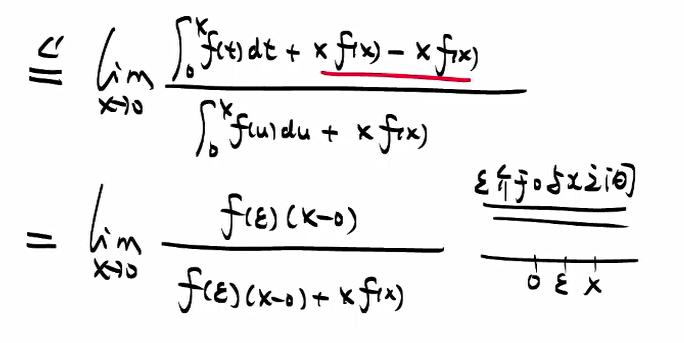 L' = lim_{x→0} \frac{∫_0^x f(t)dt + x f(x) - x f(x)}{∫_0^x f(u)du + x f(x)}
= lim_{x→0} \frac{f(ε)(x-0)}{f(ε)(x-0) + x f(x)}
ε介于0与x之间
0 ε x